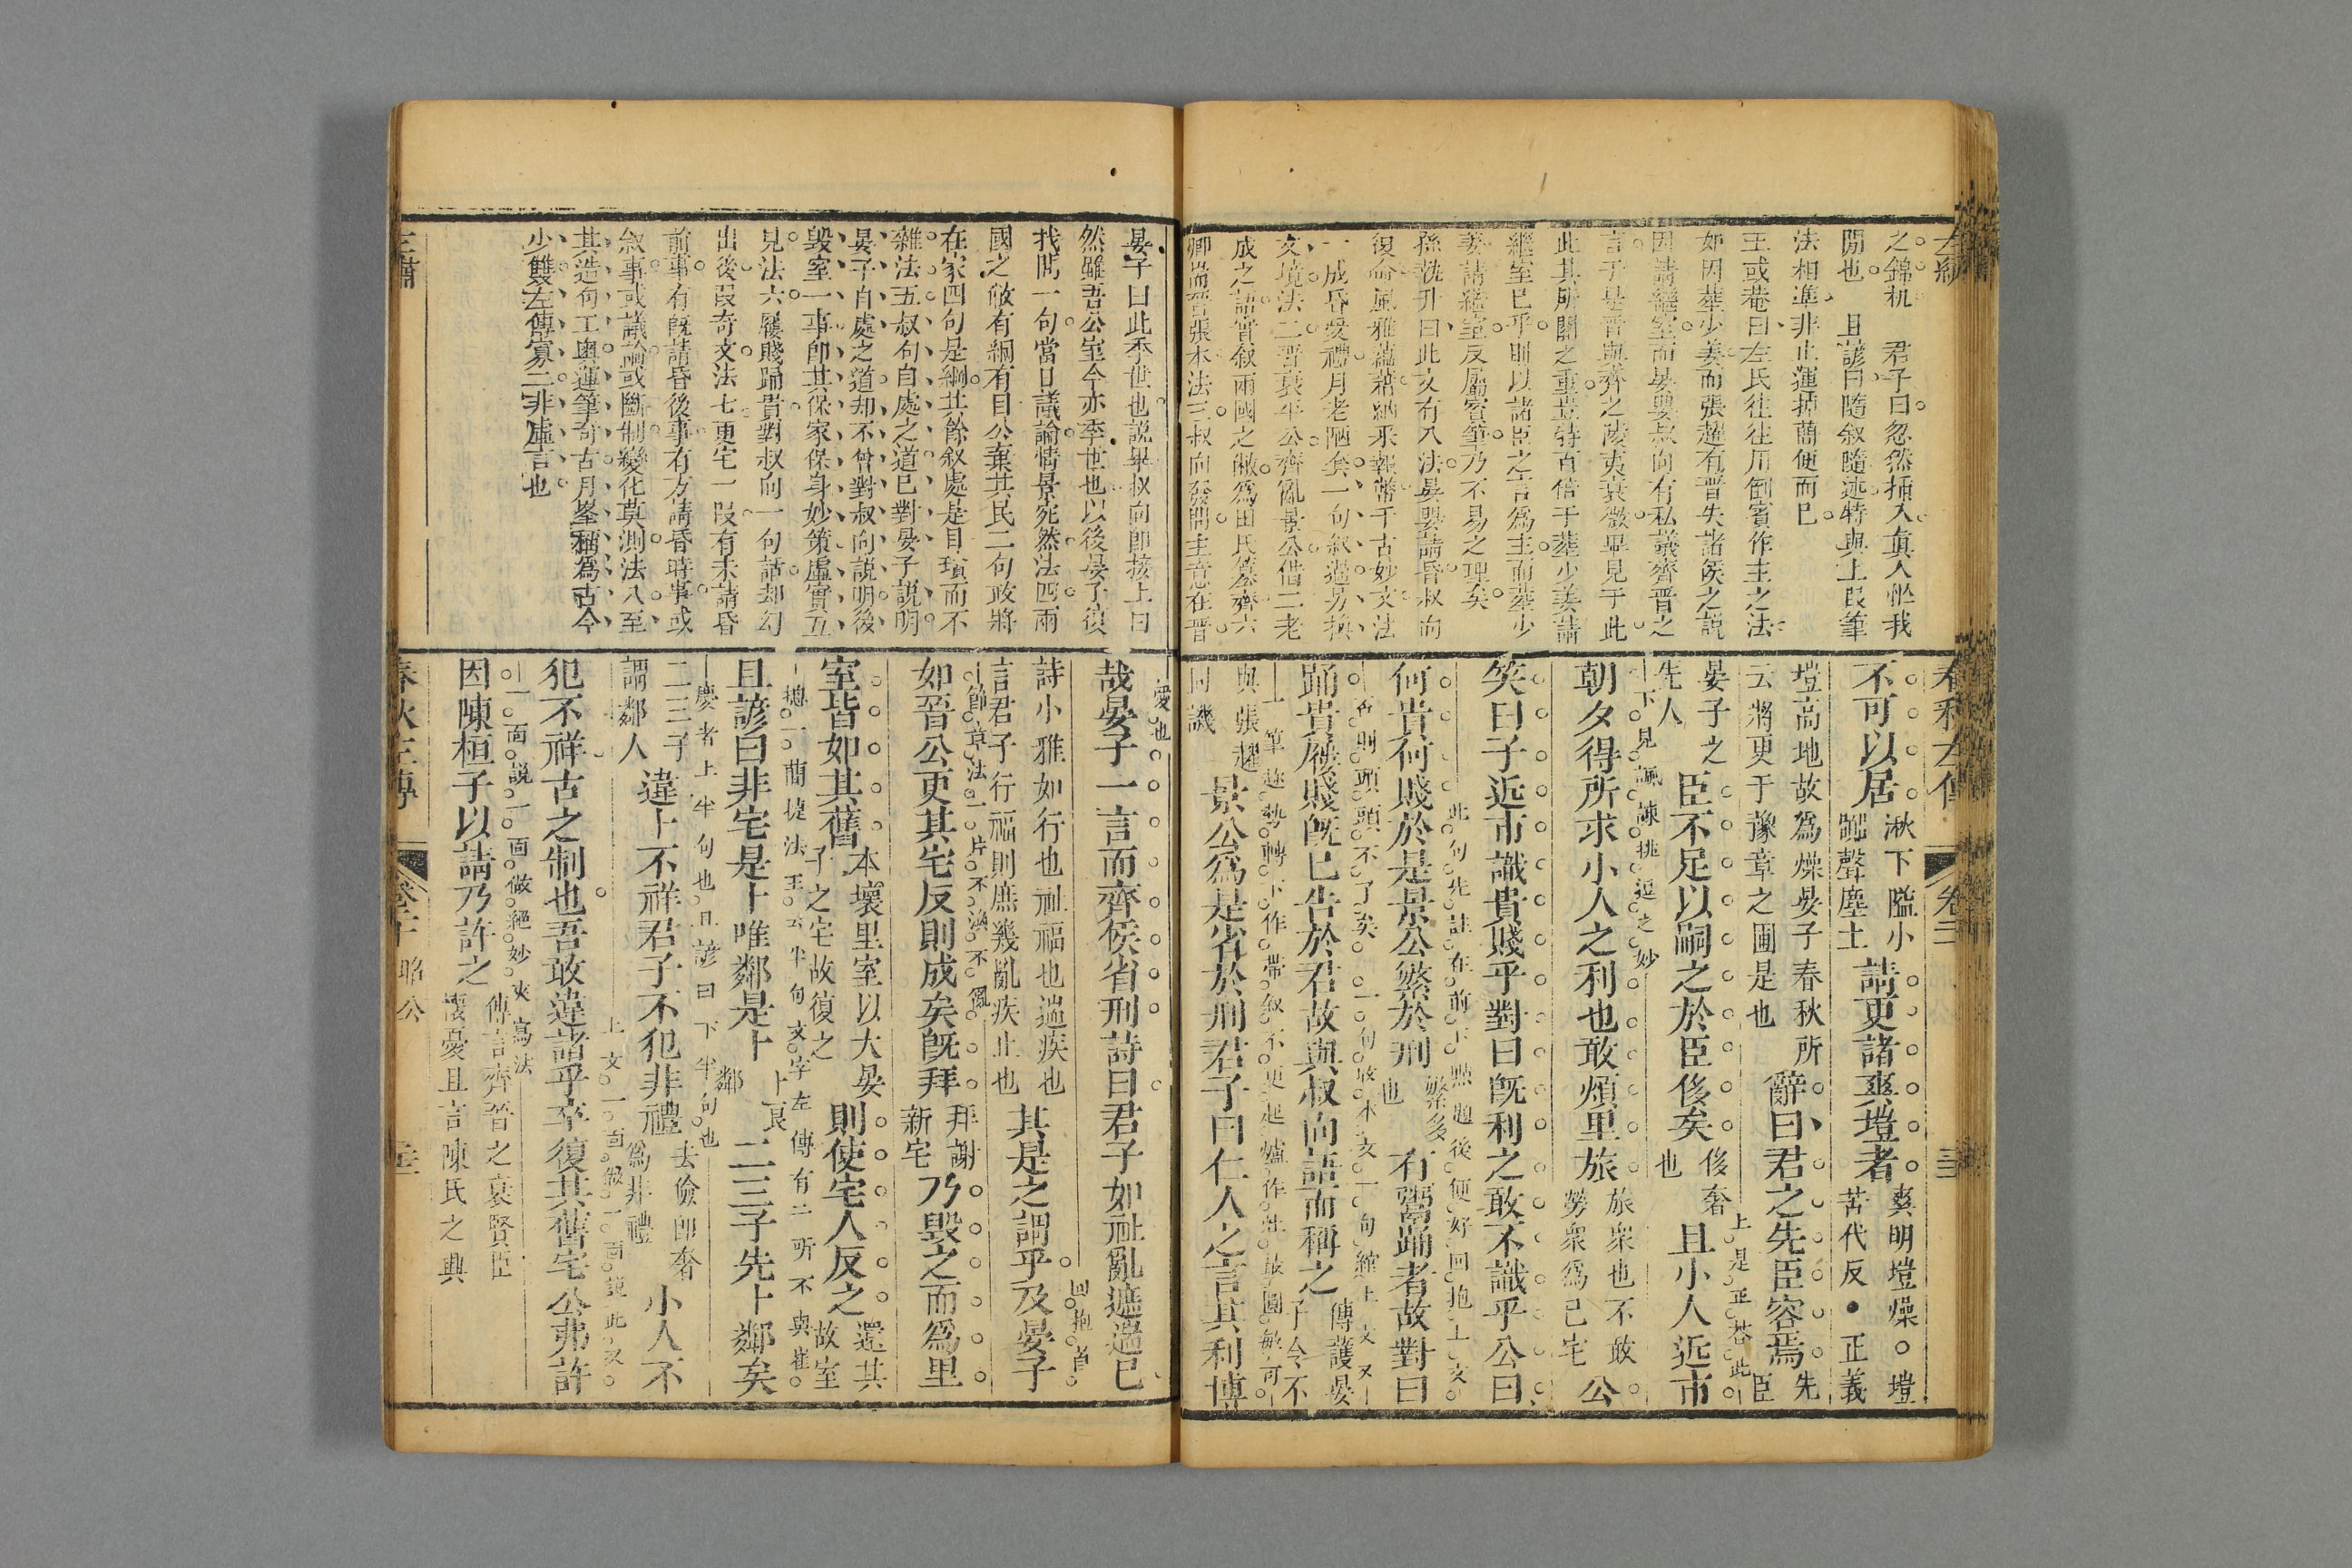 之錦机　君子曰忽然插入眞人坐我
閒也　且諺曰隨叙隨述特與上叚筆
法相準非止運掉蘭便而已
王或菴曰左氏往往用倒賓作主之法
如因葬少姜而張趯有晋失諸侯之說
因請繼室而晏嬰叔向有私議齊晋之
言于是晋與齊之陵夷衰微畢見于此
此其所關之重豈特百倍于葬少姜請
繼室已乎則以諸臣之言爲主而葬少
姜請繼室反屬賓筆乃不易之理矣
孫執升曰此文有八法晏嬰請昏叔向
復命風雅蘊藉納采報幣千古妙文法
一成昏受禮月老陋套一句叙過另換
文境法二晋衰平公齊亂景公借二老
成之語實叙兩國之敝爲田氏簒齊六
卿崩晋張本法三叔向發問主意在晋
不可以居湫下隘小嚻聲塵土請更諸爽塏者爽明塏燥○塏苦代反●正義
塏高地故爲燥晏子春秋所云將更于豫章之圃是也辭曰君之先臣容焉先臣
晏子之先人臣不足以嗣之於臣侈矣侈奢也且小人近市
上是正答此
下見諷諫挑逗之妙
朝夕得所求小人之利也敢煩里旅旅衆也不敢勞衆爲己宅公
笑曰子近市識貴賤乎對曰旣利之敢不識乎公曰
何貴何賤於是景公繁於刑繁多也有鬻踊者故對曰
此句先註在前下點題後便好回抱上文
踊貴屨賤旣已告於君故與叔向語而稱之傳護晏子令不
否則頭頭不了矣　一句收本文一句綰上文又
與張趯同譏景公爲是省於刑君子曰仁人之言其利博
一筆趂勢轉下作帶叙不更起爐作灶最圓敏可
愛也
哉晏子一言而齊侯省刑詩曰君子如祉亂遄遄已
詩小雅如行也祉福也遄疾也言君子行福則庶幾亂疾止也其是之謂乎及晏子
回抱首
節章法一片不滲不亂
如晉公更其宅反則成矣旣拜拜謝新宅乃毁之而爲里
室皆如其舊本壞里室以大晏子之宅故復之則使宅人反之還其故室
總一蘭捷法王云半句文字左傳有之所不與崔
且諺曰非宅是卜唯鄰是卜卜良鄰二三子先卜鄰矣
慶者上半句也且諺曰下半句也
二三子謂鄰人違卜不祥君子不犯非禮去儉卽奢爲非禮小人不
上文一面做一面說此又
犯不祥古之制也吾敢違諸乎卒復其舊宅公弗許
一面說一面做絕妙夾寫法
因陳桓子以請乃許之傳言齊晉之衰賢臣懷憂且言陳氏之興
晏子曰此季世也說畢叔向卽接上曰
然雖吾公室今亦季世也以後晏子復
找問一句當日議論情景宛然法四兩
國之敝有綱有目公棄其民二句政將
在家四句是綱其餘叙處是目瑣而不
雜法五叔句自處之道已對晏子說明
晏子自處之道却不曾對叔向說明後
毀室一事卽其保家保身妙策虛實互
見法六屨賤踊貴對叔向一句話却幻
出後叚奇文法七更宅一叚有未請昏
前事有旣請昏後事有方請昏時事或
叙事或議論或斷制變化莫測法八至
其造句工奥運筆奇古月峯稱爲古今
少雙左傳寡二非虛言也
春秋左傳　昭公